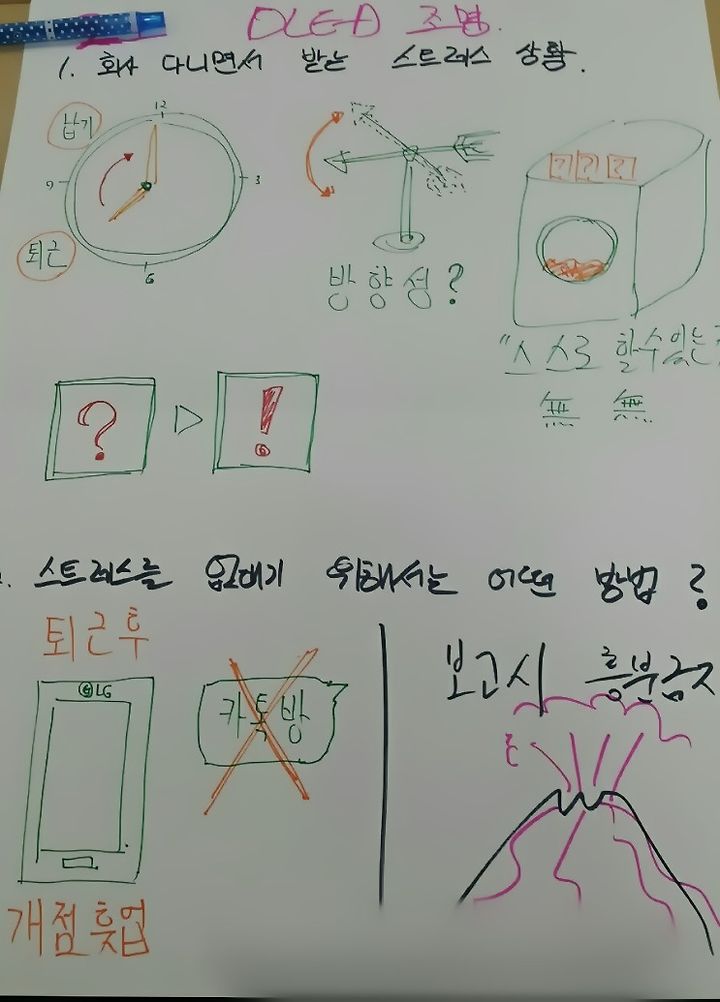 OLED 조명
1. 회사 다니면서 받는 스트레스 상황.
납기
12
9
3
퇴근
6
방향성?
???
"스스로 할수있는
無 無
?
!
. 스트레스를 없애기 위해서는 어떤 방법?
퇴근후
보고시 흥분금지
LG
카톡방
개점휴업